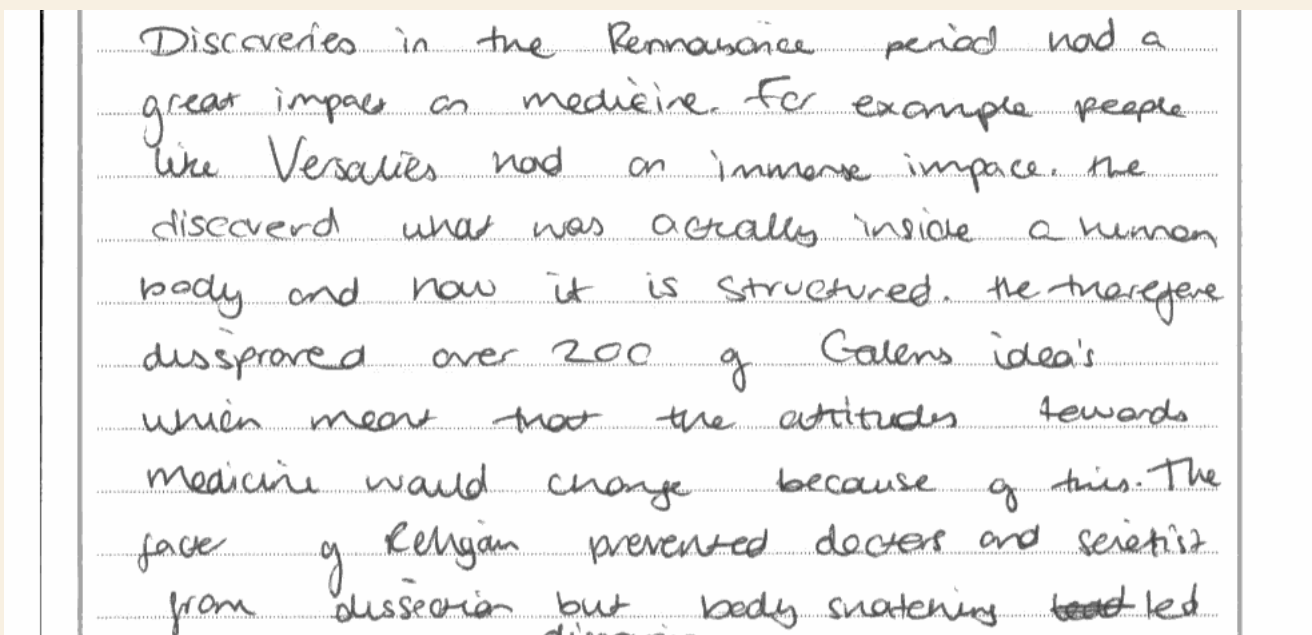 Discoveries in the Rennaisance period had a
great impact on medicine. For example people
like Versalies had an immense impact. He
discoverd what was actually inside a human
body and how it is structured. He therefore
dissproved over 200 of Galens idea's
which meant that the attitudes towards
medicine would change because of this. The
factor of Religion prevented doctors and scietist
from dissection but body snatching led